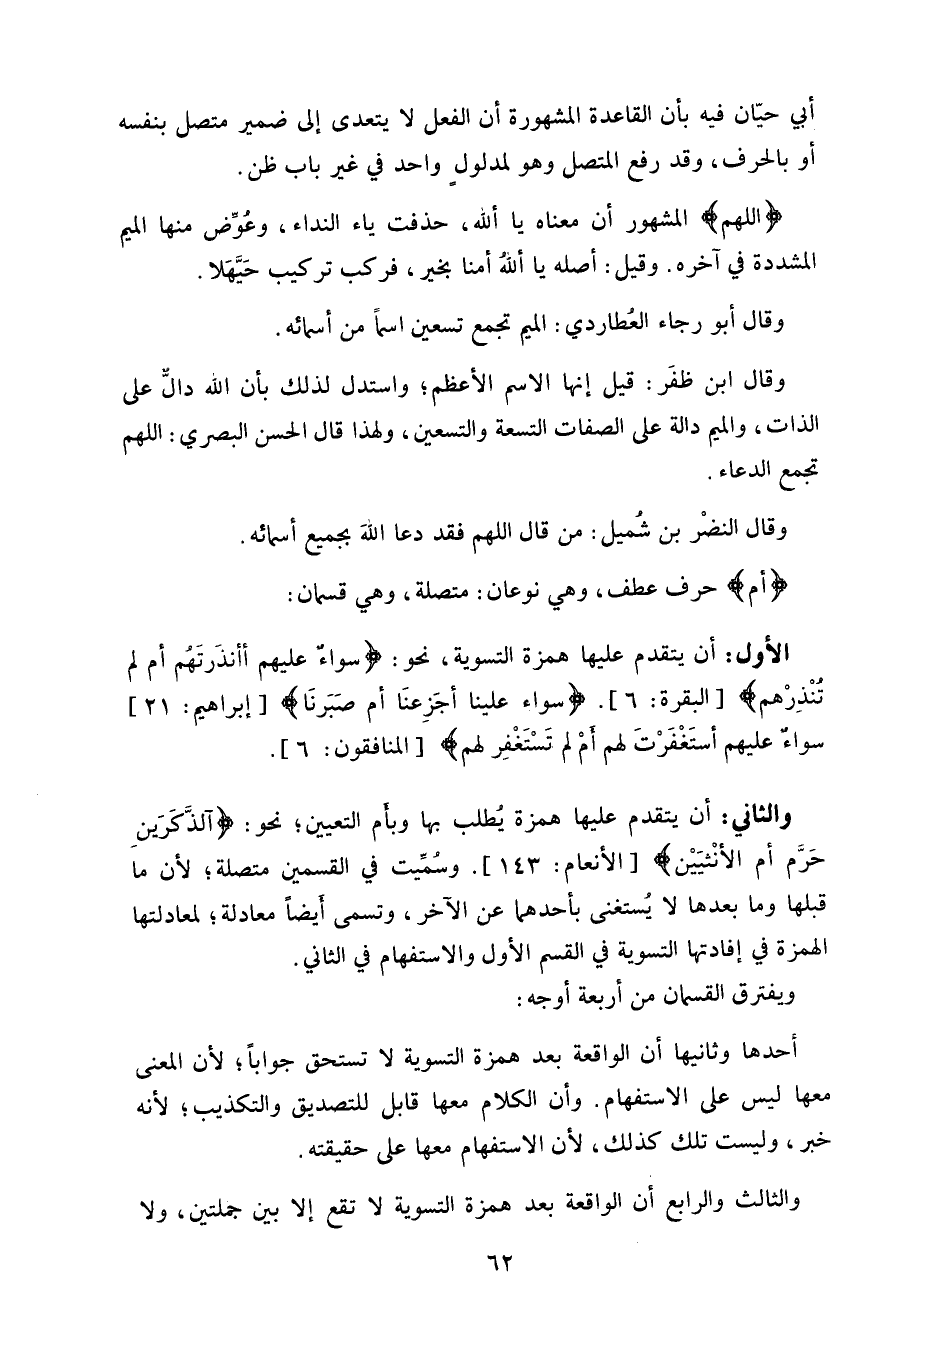 أبي حيّان فيه بأن القاعدة المشهورة أن الفعل لا يتعدى إلى ضمير متصل بنفسه
أو بالحرف، وقد رفع المتصل وهو لمدلولٍ واحد في غير باب ظن.
﴿اللهم﴾ المشهور أن معناه يا ألله، حذفت ياء النداء، وعُوِّض منها الميم
المشددة في آخره. وقيل: أصله يا أللهُ أمنا بخير، فركب تركيب حَيَّهَلا.
وقال أبو رجاء العُطاردي: الميم تجمع تسعين اسماً من أسمائه.
وقال ابن ظفَر: قيل إنها الاسم الأعظم؛ واستدل لذلك بأن الله دالٌّ على
الذات، والميم دالة على الصفات التسعة والتسعين، ولهذا قال الحسن البصري: اللهم
تجمع الدعاء.
وقال النضْر بن شُميل: من قال اللهم فقد دعا اللهَ بجميع أسمائه.
﴿أم﴾ حرف عطف، وهي نوعان: متصلة، وهي قسمان:
الأول: أن يتقدم عليها همزة التسوية، نحو: ﴿سواءٌ عليهم أأنذَرتَهُم أم لم
تُنْذِرْهم﴾ [البقرة: ٦]. ﴿سواء علينا أجَزِعنَا أم صَبَرنَا﴾ [إبراهيم: ٢١]
سواءٌ عليهم أستَغْفَرْتَ لهم أمْ لم تَسْتَغْفِر لهم﴾ [المنافقون: ٦].
والثاني: أن يتقدم عليها همزة يُطلب بها وبأَم التعيين؛ نحو: ﴿آلذَّكَرَينِ
حَرَّم أم الأنْثيَيْن﴾ [الأنعام: ١٤٣]. وسُمِّيت في القسمين متصلة؛ لأن ما
قبلها وما بعدها لا يُستغنى بأحدهما عن الآخر، وتسمى أَيضاً معادلة؛ لمعادلتها
الهمزة في إفادتها التسوية في القسم الأول والاستفهام في الثاني.
ويفترق القسمان من أربعة أوجه:
أحدها وثانيها أن الواقعة بعد همزة التسوية لا تستحق جواباً؛ لأن المعنى
معها ليس على الاستفهام. وأن الكلام معها قابل للتصديق والتكذيب؛ لأنه
خبر، وليست تلك كذلك، لأن الاستفهام معها على حقيقته.
والثالث والرابع أن الواقعة بعد همزة التسوية لا تقع إلا بين جملتين، ولا
٦٢